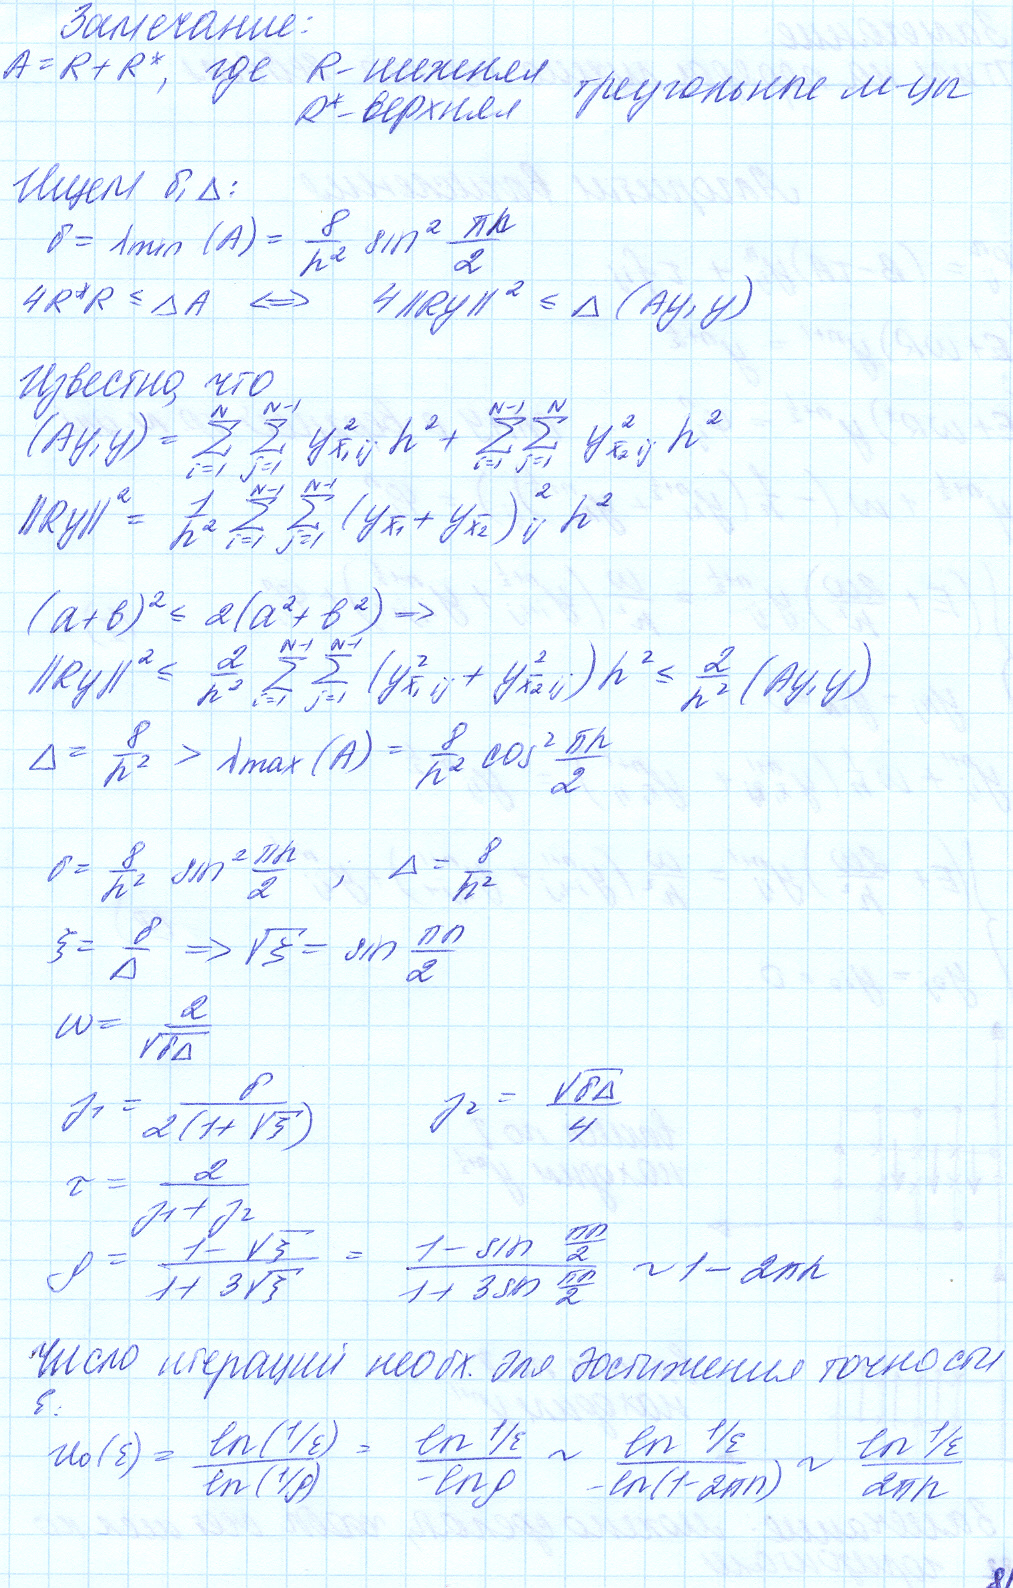 Замечание:
A = R + R*, где R - нижняя треугольные м-цы
R* - верхняя
Ищем δ, Δ:
δ = λmin (A) = 8/h² sin² πh/2
4R*R ≤ ΔA ⇔ 4||Ry||² ≤ Δ (Ay, y)
Известно, что
(Ay, y) = ∑_{i=1}^{N} ∑_{j=1}^{N-1} y²_{x̄₁ ij} h² + ∑_{i=1}^{N-1} ∑_{j=1}^{N} y²_{x̄₂ ij} h²
||Ry||² = 1/h² ∑_{i=1}^{N-1} ∑_{j=1}^{N-1} (y_{x̄₁} + y_{x̄₂})²_{ij} h²
(a+b)² ≤ 2(a² + b²) ⇒
||Ry||² ≤ 2/h² ∑_{i=1}^{N-1} ∑_{j=1}^{N-1} (y²_{x̄₁ ij} + y²_{x̄₂ ij}) h² ≤ 2/h² (Ay, y)
Δ = 8/h² > λmax (A) = 8/h² cos² πh/2
δ = 8/h² sin² πh/2 ; Δ = 8/h²
ξ = δ/Δ ⇒ √ξ = sin πh/2
ω = 2/√(δΔ)
γ₁ = δ/(2(1+√ξ)) γ₂ = √(δΔ)/4
τ = 2/(γ₁ + γ₂)
ρ = (1 - √ξ)/(1 + 3√ξ) = (1 - sin πh/2)/(1 + 3 sin πh/2) ~ 1 - 2πh
Число итераций необх. для достижения точности
ε:
n₀(ε) = ln(1/ε)/ln(1/ρ) = ln 1/ε / -lnρ ~ ln 1/ε / -ln(1-2πh) ~ ln 1/ε / 2πh